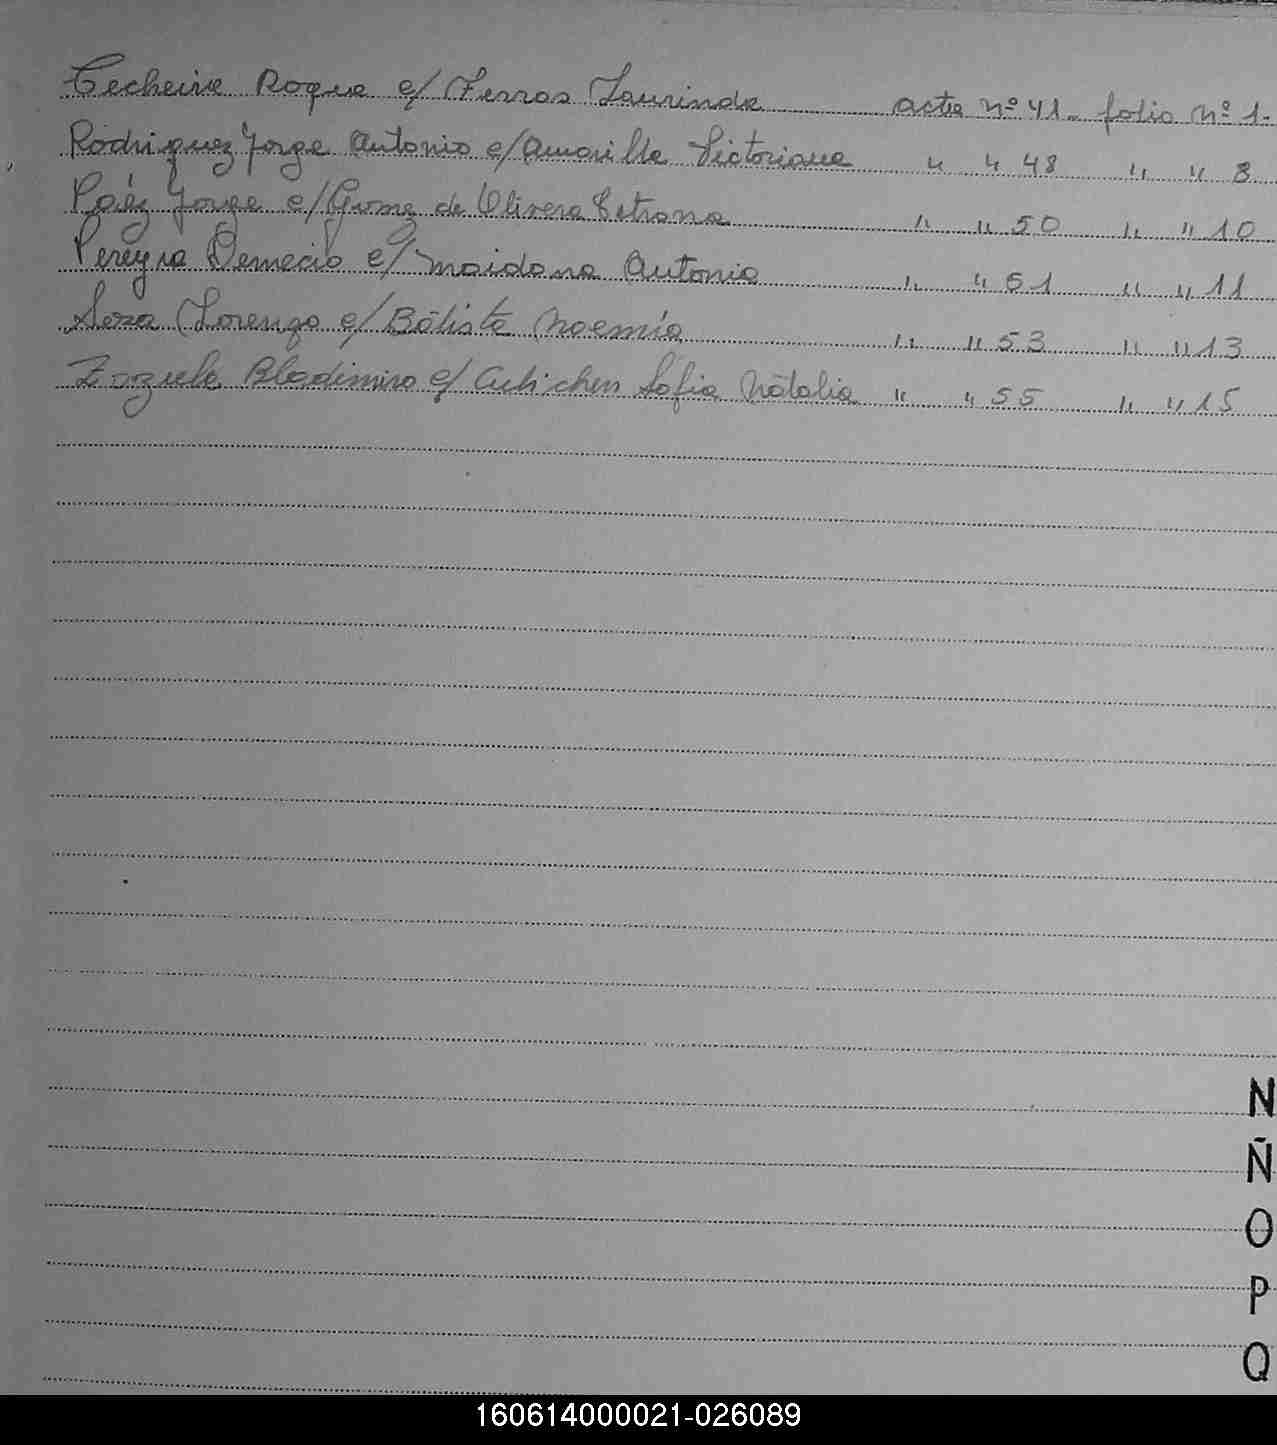 Techeira Roque c/ Ferras Laurinda acta nº 41. folio nº 1.
Rodriguez Jorge Antonio c/ Amarilla Victoriana " " 48 " " 8
Paéz Jorge c/ Gomez de Olivera Petrona " " 50 " " 10
Pereyra Demecio c/ Maidana Antonia " " 51 " " 11
Sosa Lorenzo c/ Batista Noemía " " 53 " " 13
Zozula Bladimiro c/ Sofia Natalia " " 55 " " 15
N
Ñ
O
P
Q
160614000021-026089